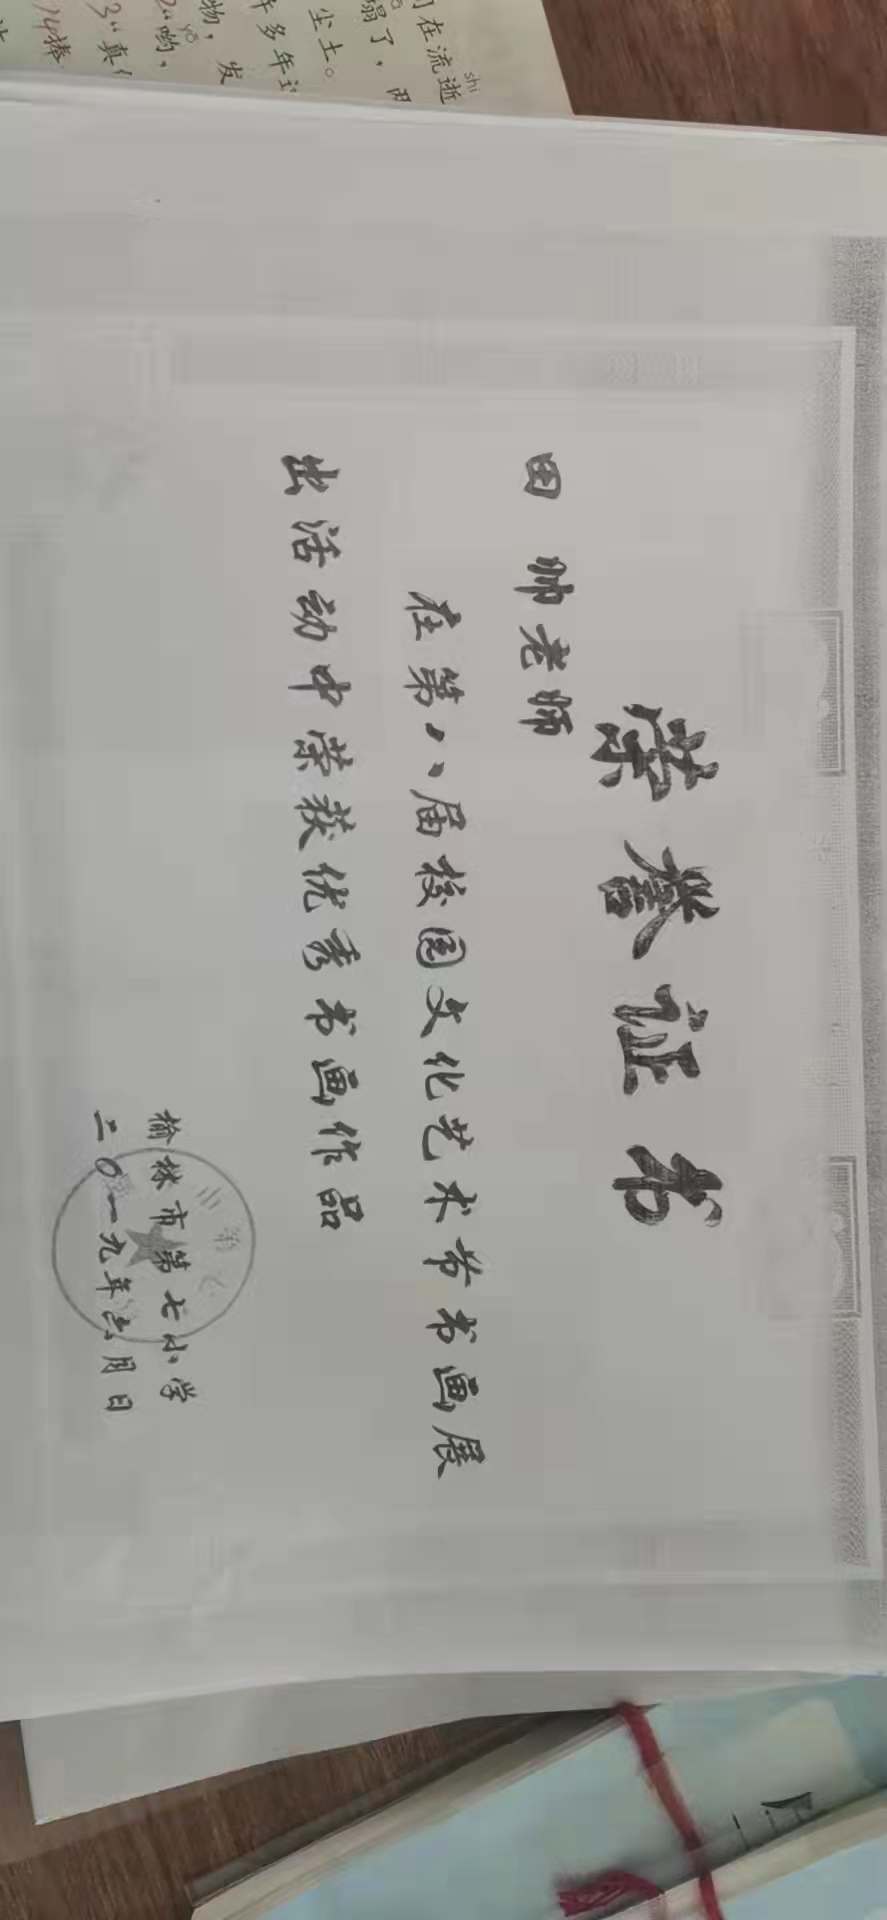 荣誉证书
田帅老师
在第八届校园文化艺术节书画展
出活动中荣获优秀书画作品
榆林市第七小学
二0一九年六月日
在流逝
shi
塌了，
尘土。
多年
物，发
yō
2“哟，
3“真
14捧